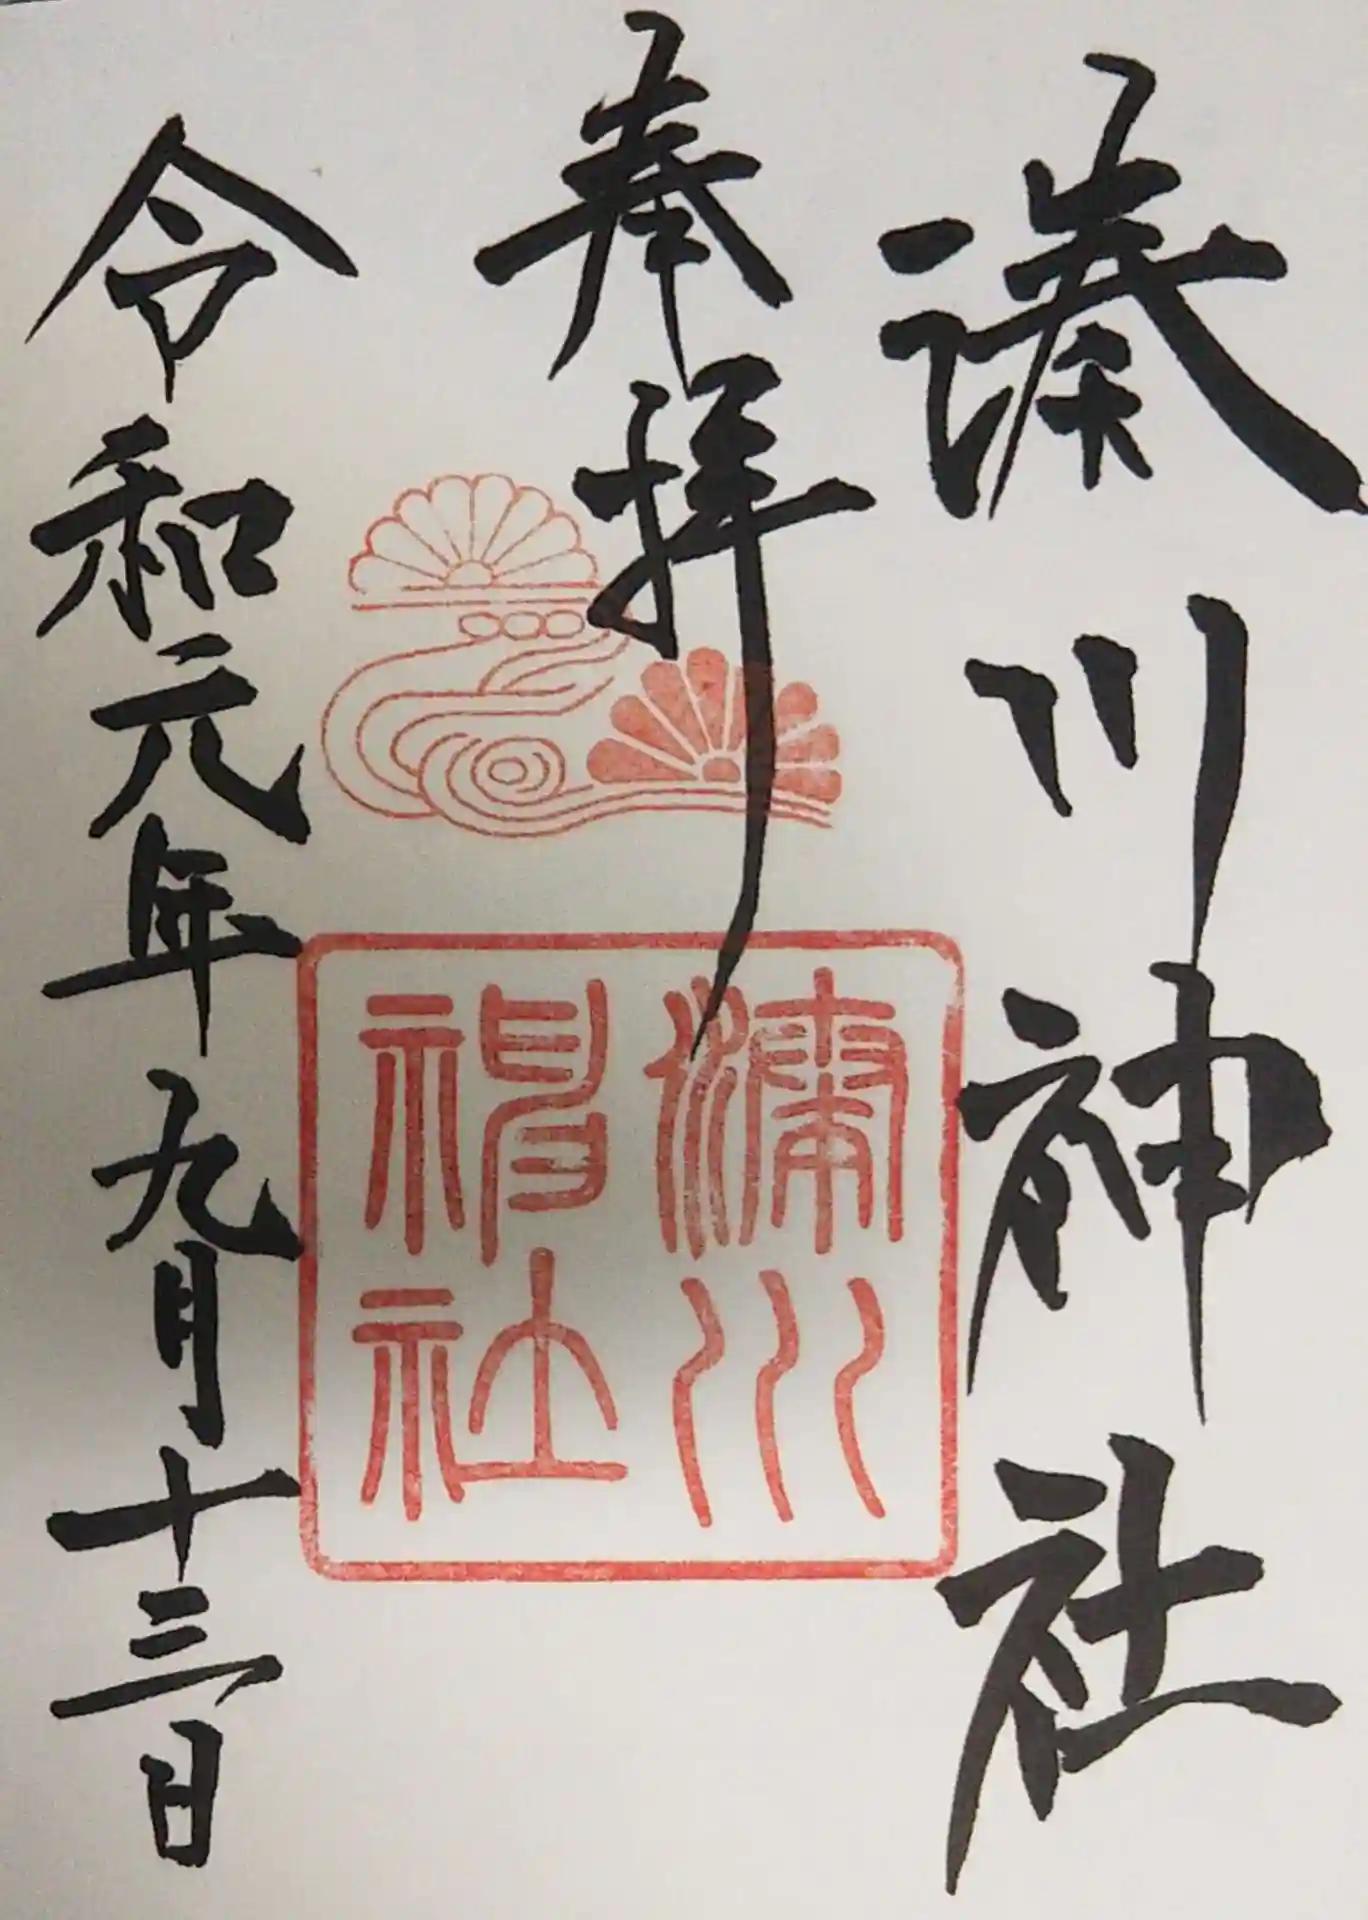 湊川神社
奉拝
湊川
神社
令和元年九月十三日